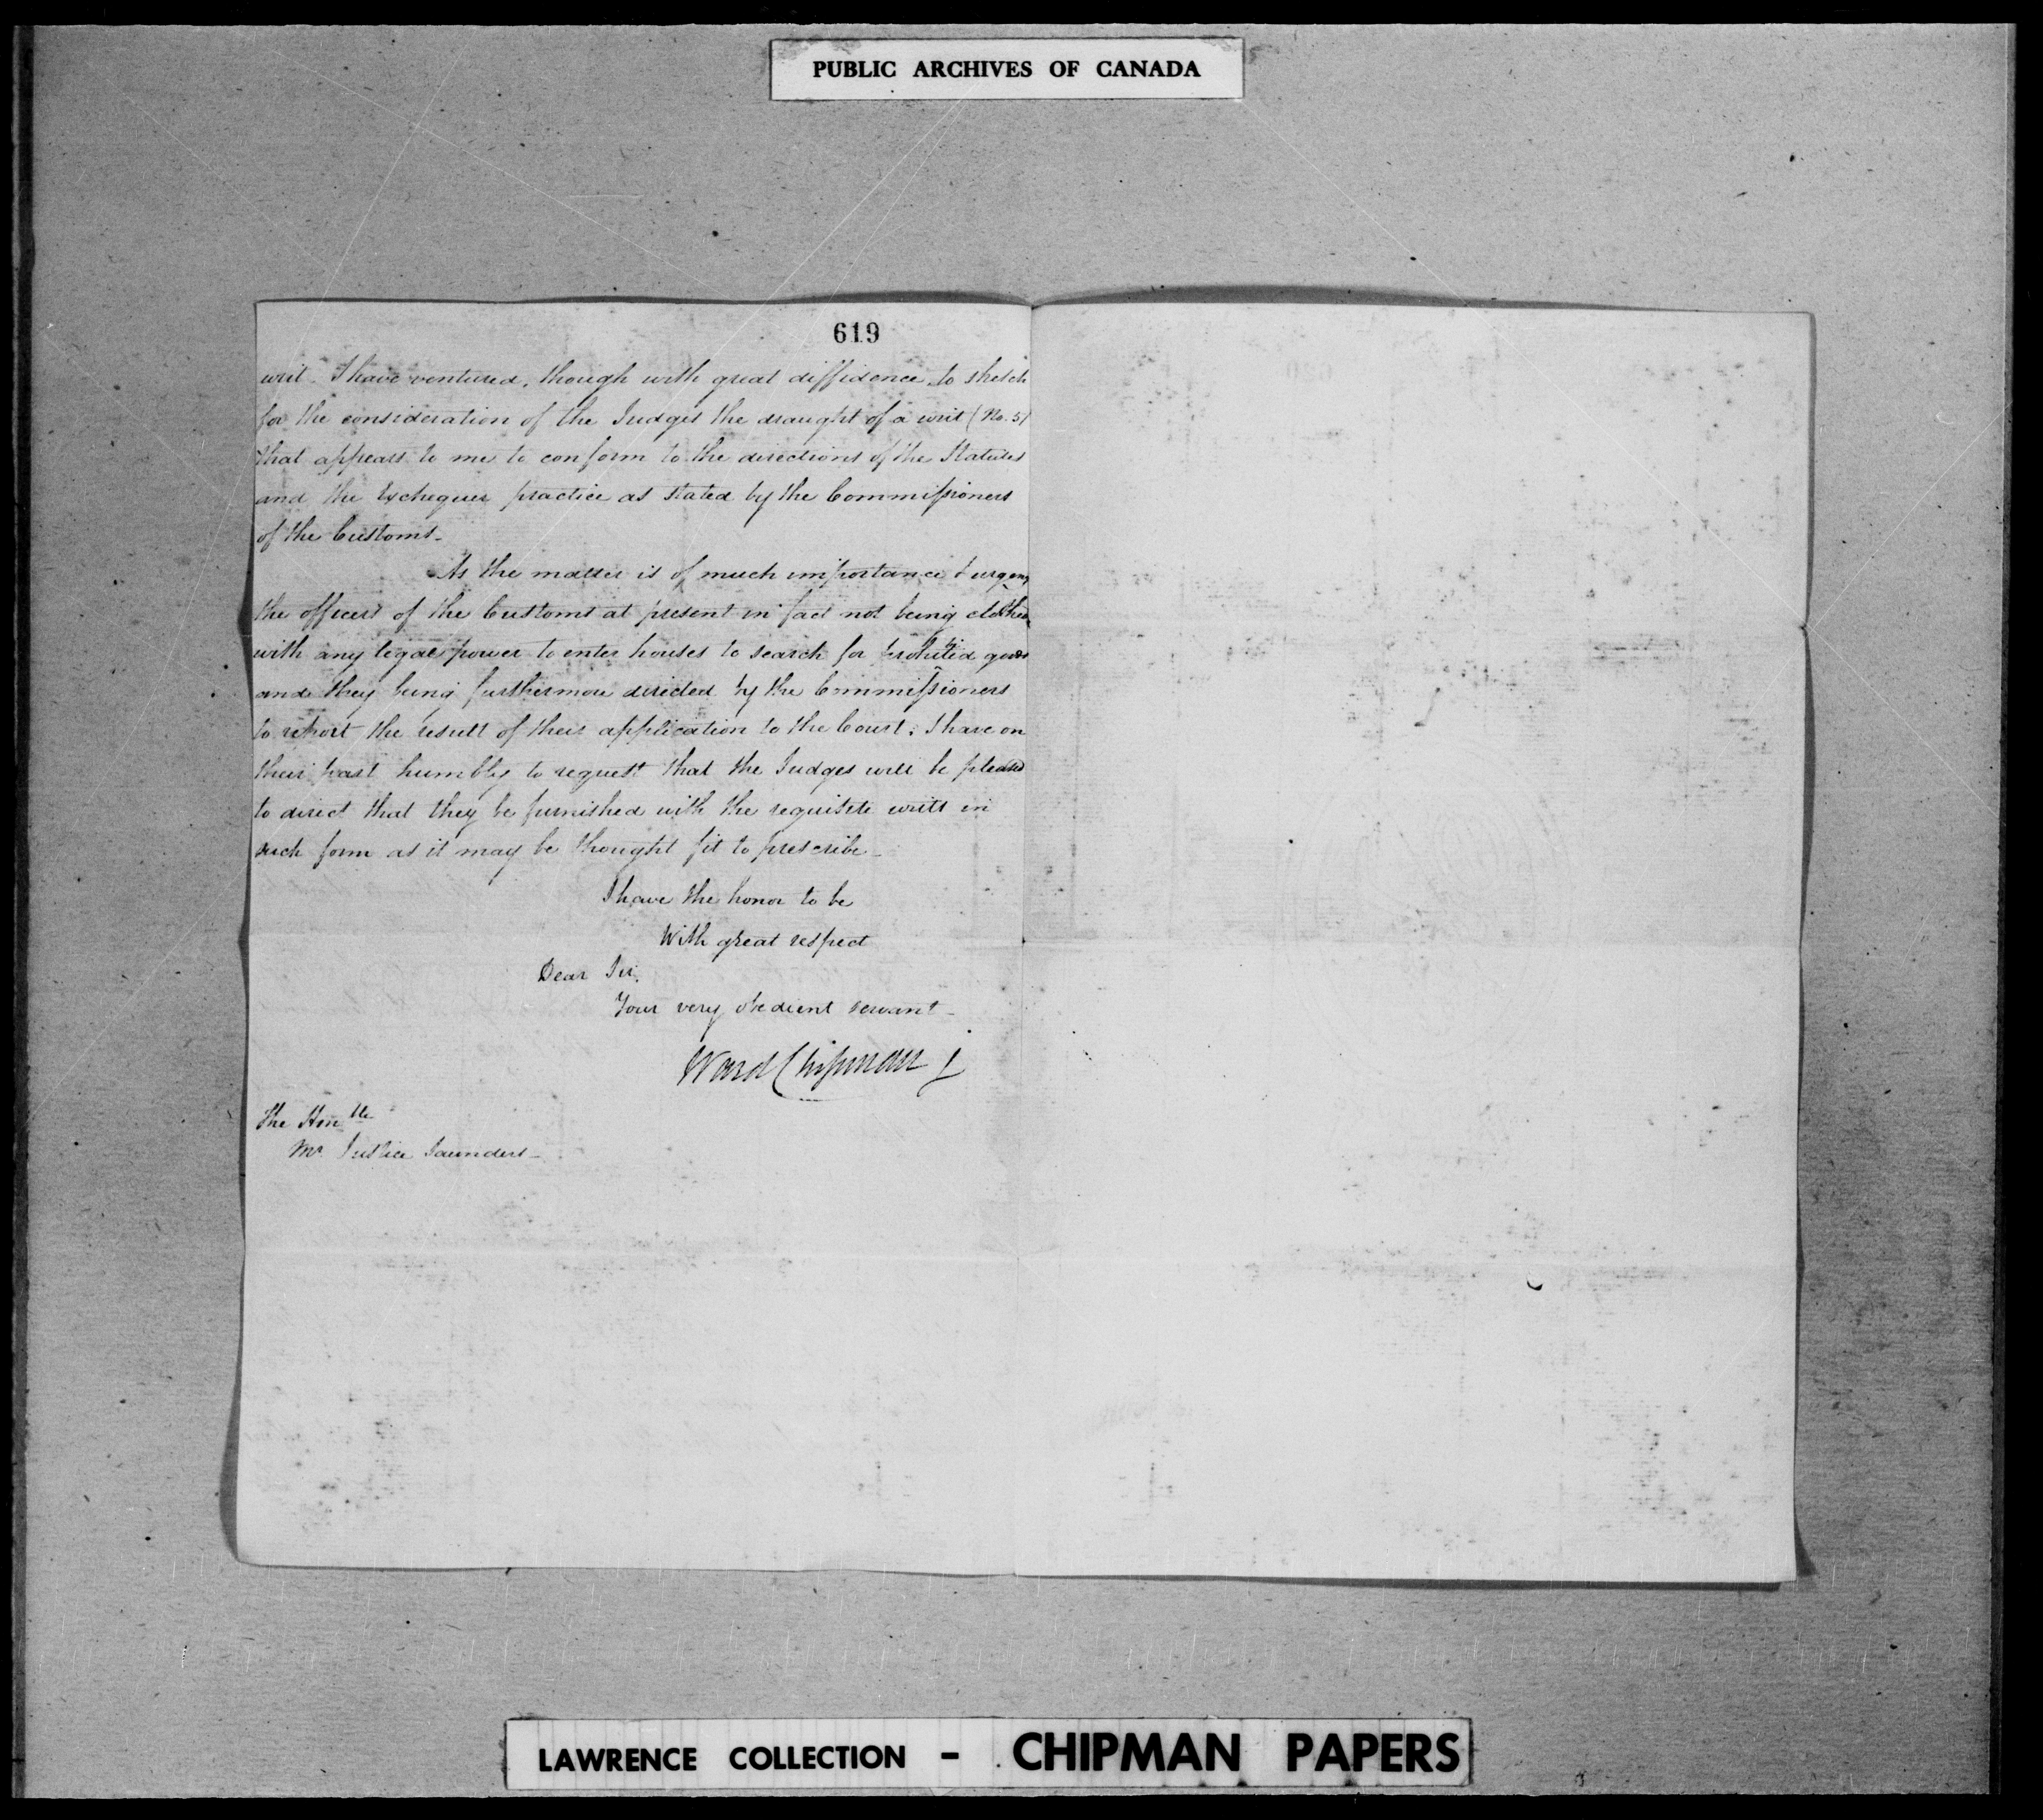 PUBLIC ARCHIVES OF CANADA
619
writ. I have ventured, though with great diffidence, to sketch
for the consideration of the Judges the draught of a writ (No. 5)
that appears to me to conform to the directions of the Statutes
and the Exchequer practice as stated by the Commissioners
of the Customs_
As the matter is of much importance & urgency
the officers of the Customs at present in fact not being clothed
with any legal power to enter houses to search for prohibited goods
and they being furthermore directed by the Commissioners
to report the result of their application to the Court, I have on
their part humbly to request that the Judges will be pleased
to direct that they be furnished with the requisite writs in
such form as it may be thought fit to prescribe_
I have the honor to be
With great respect
Dear Sir,
Your very obedient servant_
Ward Chipman j
The Honble
Mr. Justice Saunders_
LAWRENCE COLLECTION - CHIPMAN PAPERS